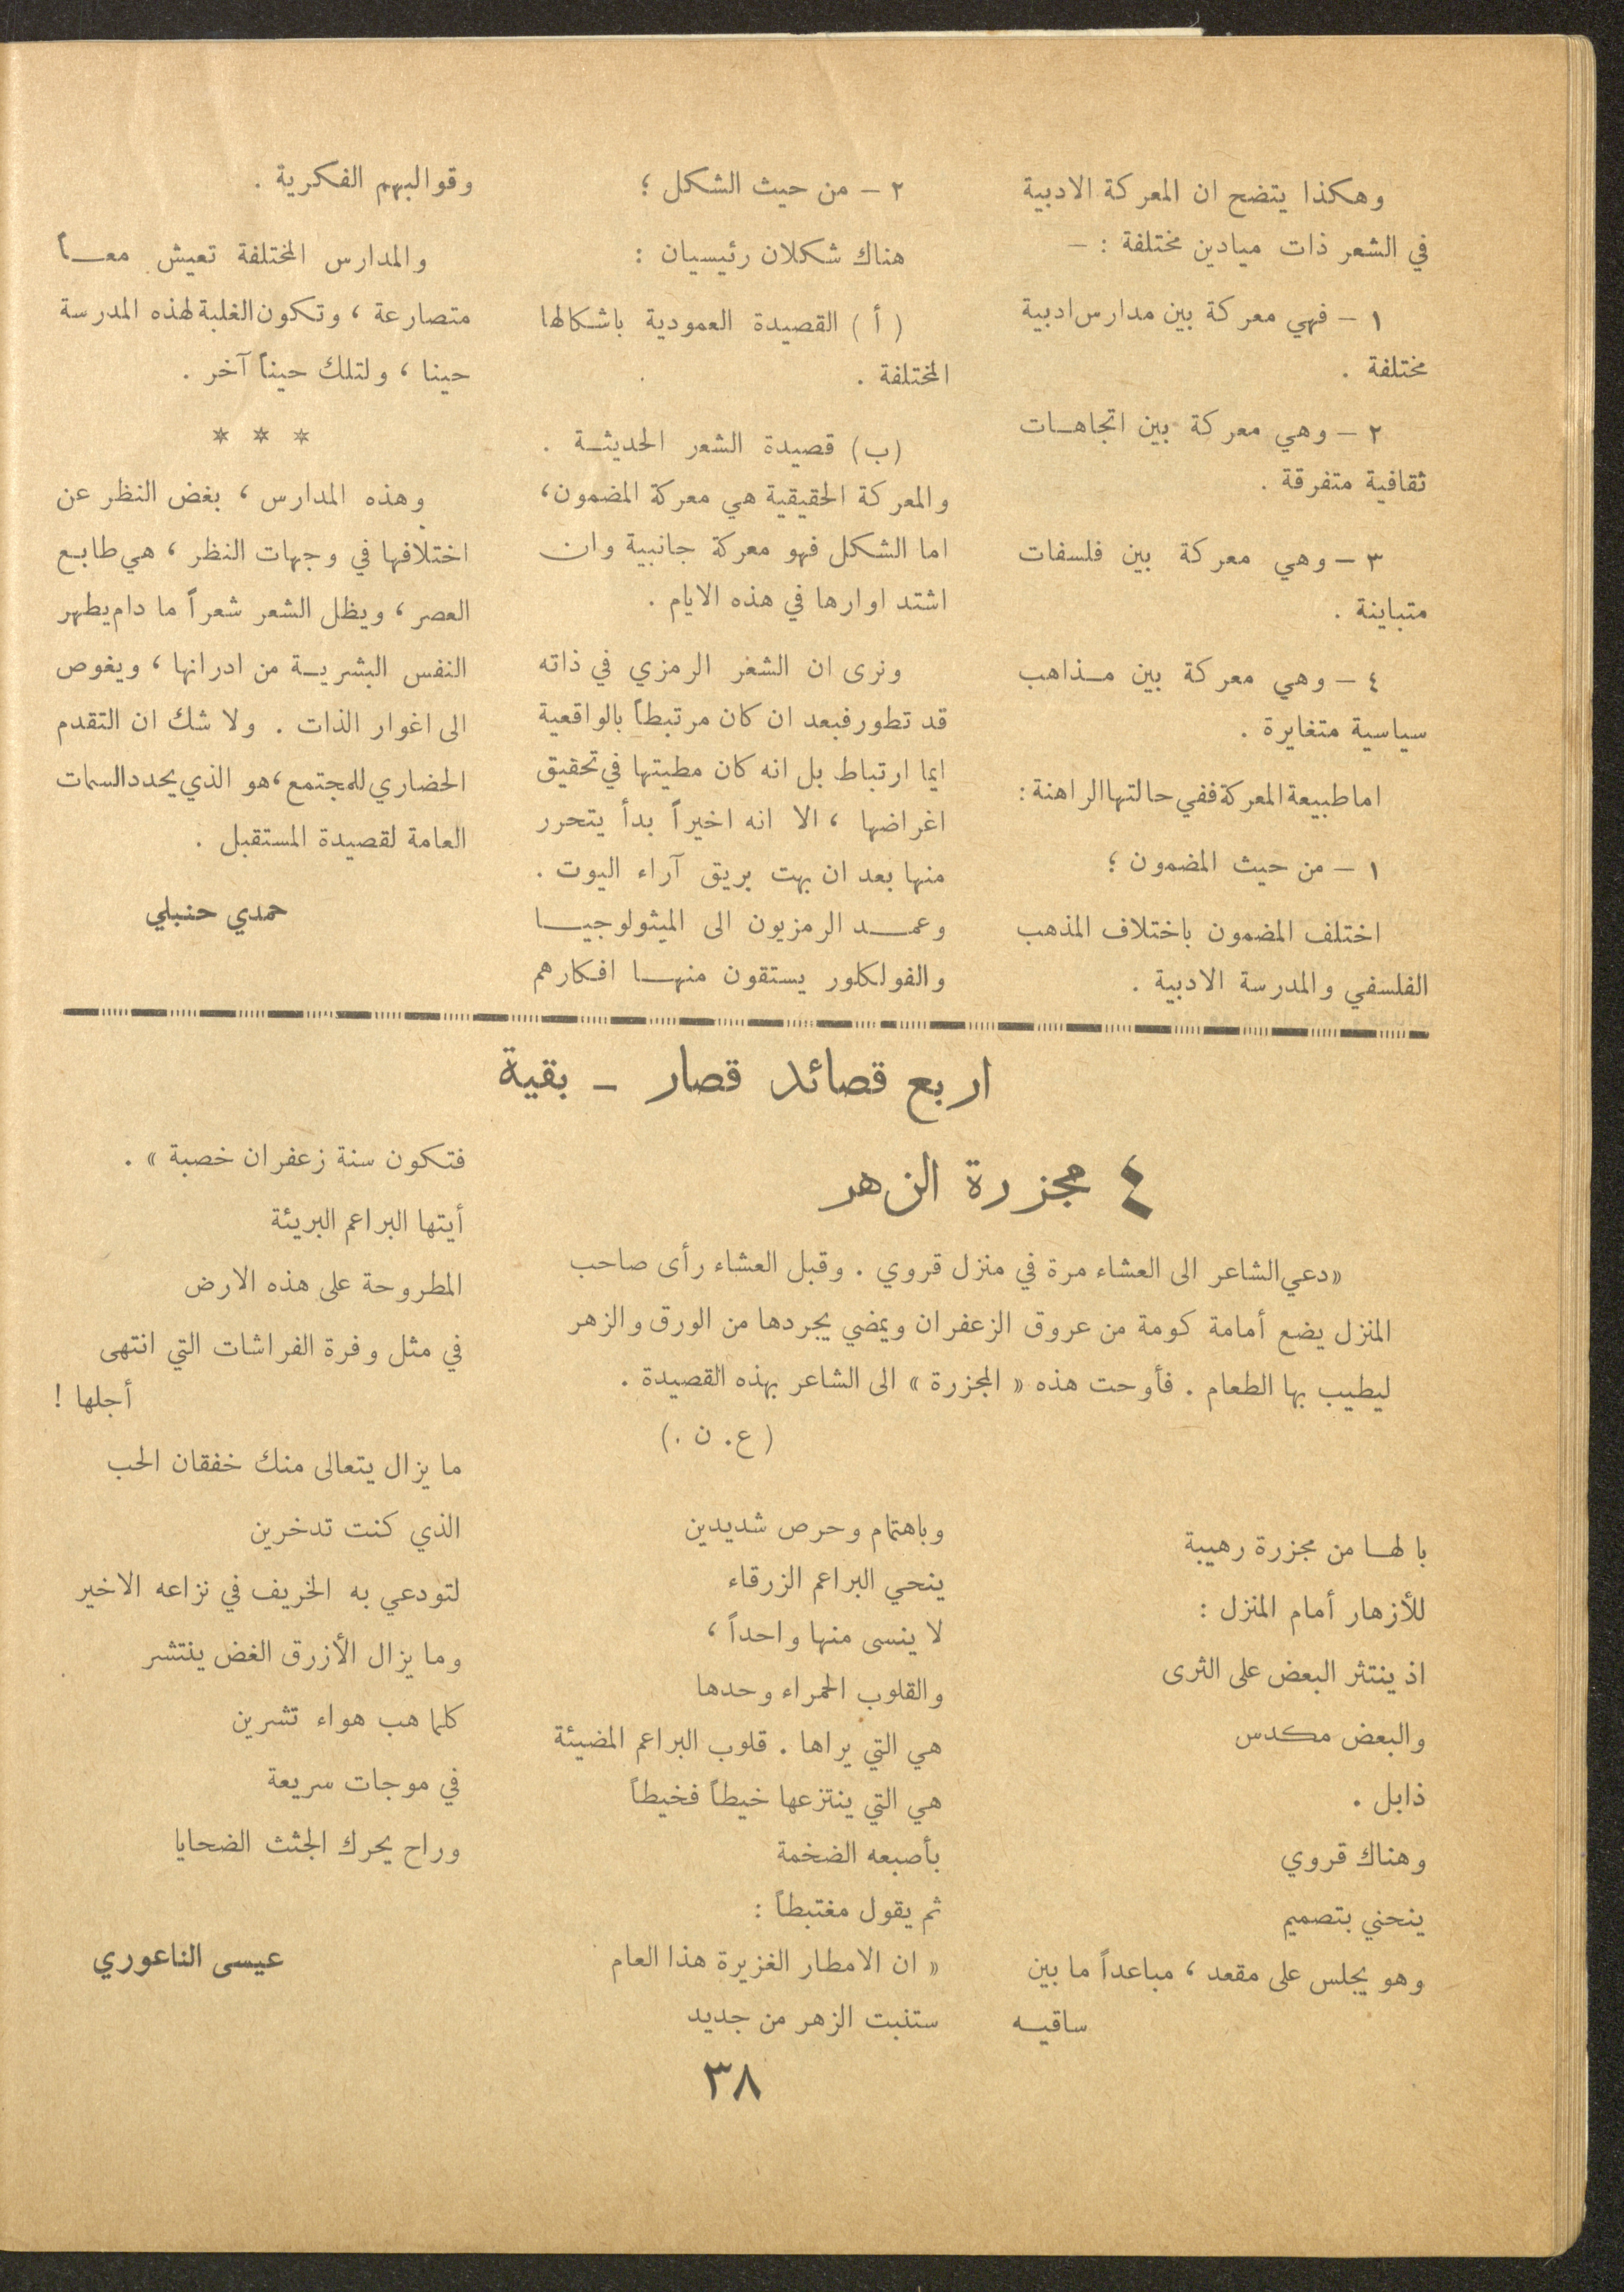 وهكذا يتضح ان المعركة الادبية
في الشعر ذات ميادين مختلفة : –
١ – فهي معركة بين مدارس ادبية
مختلفة .
٢ – وهي معركة بين اتجاهات
ثقافية متفرقة .
٣ – وهي معركة بين فلسفات
متباينة .
٤ – وهي معركة بين مذاهب
سياسية متغايرة .
اما طبيعة المعركة ففي حالتها الراهنة :
١ – من حيث المضمون ؛
اختلف المضمون باختلاف المذهب
الفلسفي والمدرسة الادبية .
٢ – من حيث الشكل ؛
هناك شكلان رئيسيان :
( أ ) القصيدة العمودية باشكالها
المختلفة .
(ب) قصيدة الشعر الحديثة .
والمعركة الحقيقية هي معركة المضمون ،
اما الشكل فهو معركة جانبية وان
اشتد اوارها في هذه الايام .
ونرى ان الشغر الرمزي في ذاته
قد تطور فبعد ان كان مرتبطاً بالواقعية
ايما ارتباط بل انه كان مطيتها في تحقيق
اغراضها ، الا انه اخيراً بدأ يتحرر
منها بعد ان بهت بريق آراء اليوت .
وعمد الرمزيون الى الميثولوجيا
والفولكلور يستقون منها افكارهم
وقوالبهم الفكرية .
والمدارس المختلفة تعيش معاً
متصارعة ، وتكون الغلبة لهذه المدرسة
حينا ، ولتلك حيناً آخر .
* * *
وهذه المدارس ، بغض النظر عن
اختلافها في وجهات النظر ، هي طابع
العصر ، ويظل الشعر شعراً ما دام يطهر
النفس البشرية من ادرانها ، ويغوص
الى اغوار الذات . ولا شك ان التقدم
الحضاري للمجتمع ، هو الذي يحدد السمات
العامة لقصيدة المستقبل .
حمدي حنبلي
اربع قصائد قصار – بقية
٤ مجزرة الزهر
«دعي الشاعر الى العشاء مرة في منزل قروي . وقبل العشاء رأى صاحب
المنزل يضع أمامة كومة من عروق الزعفران ويمضي يجردها من الورق والزهر
ليطيب بها الطعام . فأوحت هذه « المجزرة » الى الشاعر بهذه القصيدة .
( ع. ن .)
يا لها من مجزرة رهيبة
للأزهار أمام المنزل :
اذ ينتثر البعض على الثرى
والبعض مكدس
ذابل .
وهناك قروي
ينحني بتصميم
وهو يجلس على مقعد ، مباعداً ما بين
ساقيه
وباهتمام وحرص شديدين
ينحي البراعم الزرقاء
لا ينسى منها واحداً ،
والقلوب الحمراء وحدها
هي التي يراها . قلوب البراعم المضيئة
هي التي ينتزعها خيطاً فخيطاً
بأصبعه الضخمة
ثم يقول مغتبطاً :
« ان الامطار الغزيرة هذا العام
ستنبت الزهر من جديد
فتكون سنة زعفران خصبة » .
أيتها البراعم البريئة
المطروحة على هذه الارض
في مثل وفرة الفراشات التي انتهى
أجلها !
ما يزال يتعالى منك خفقان الحب
الذي كنت تدخرين
لتودعي به الخريف في نزاعه الاخير
وما يزال الأزرق الغض ينتشر
كلما هب هواء تشرين
في موجات سريعة
وراح يحرك الجثث الضحايا
عيسى الناعوري
٣٨